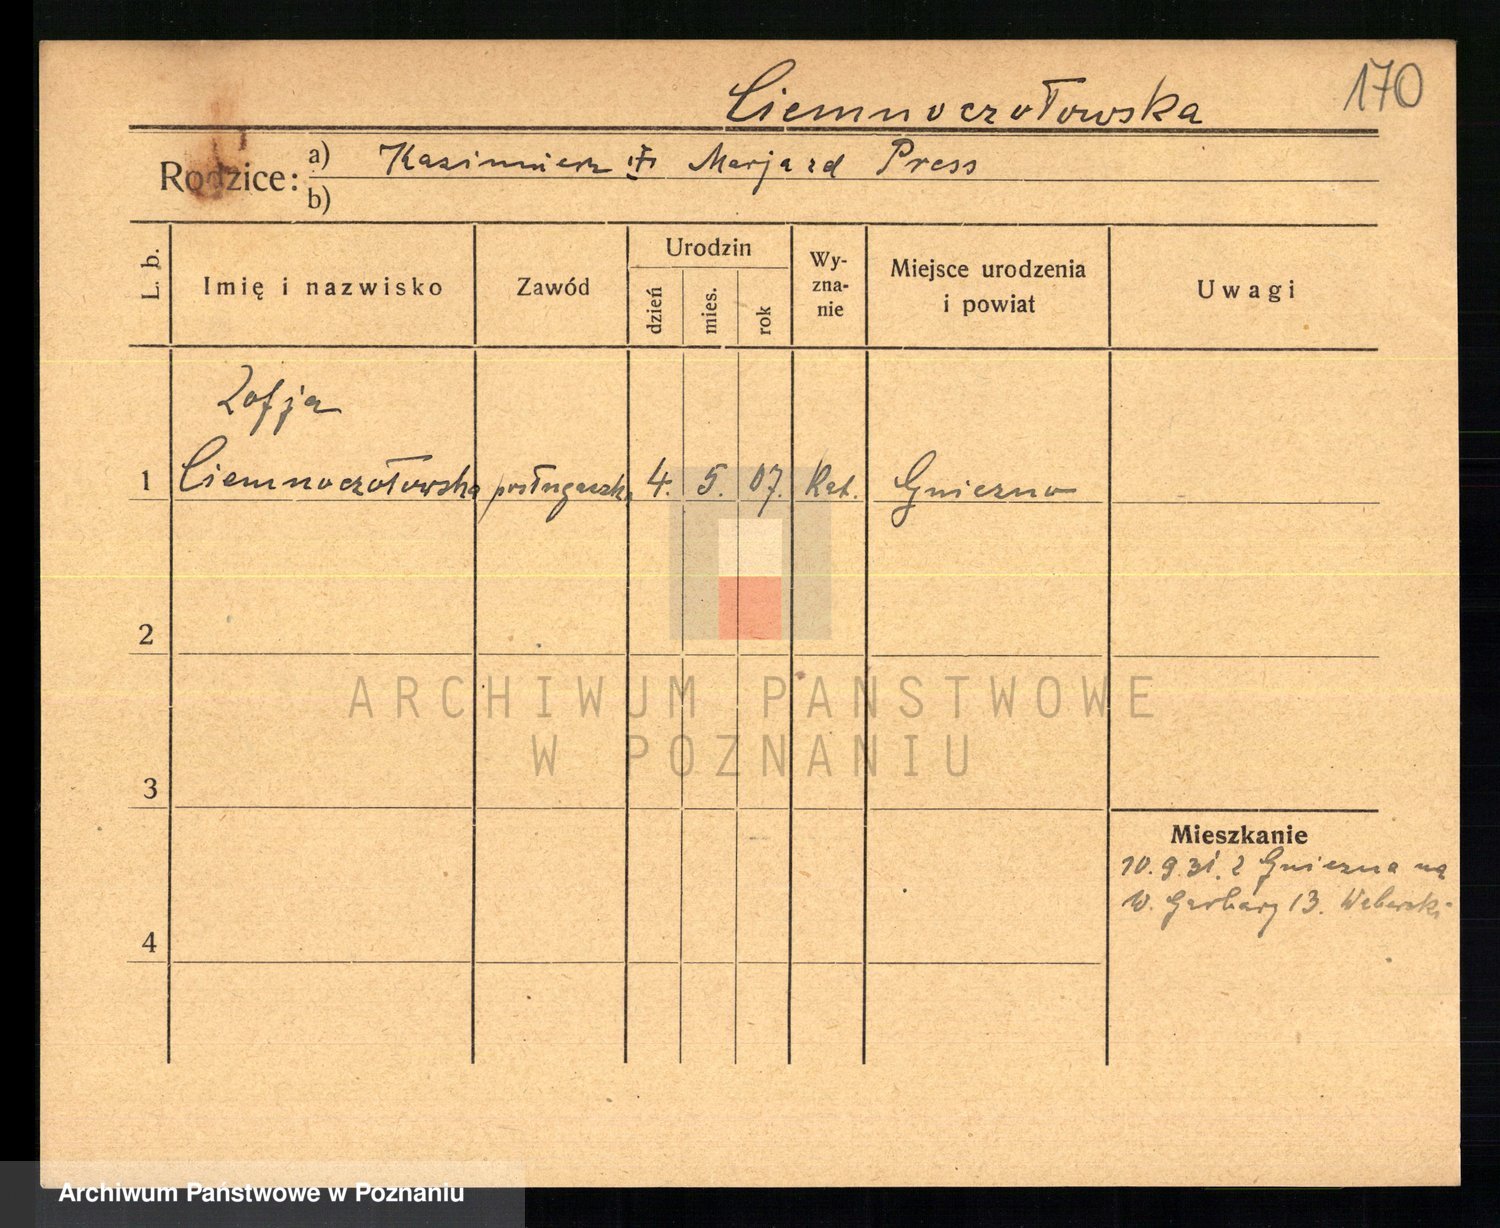 170
Ciemnoczołowska
Rodzice:
a) Kazimierz i Marja zd Press
b)
L. b.
Imię i nazwisko
Zawód
Urodzin
dzień
mies.
rok
Wy-
zna-
nie
Miejsce urodzenia
i powiat
Uwagi
Zofja
1 Ciemnoczołowska posługaczka 4. 5. 07. Kat. Gniezno
2
3
4
Mieszkanie
10.9.31. z Gniezna na
W. Garbary 13.
ARCHIWUM PAŃSTWOWE
W POZNANIU
Archiwum Państwowe w Poznaniu